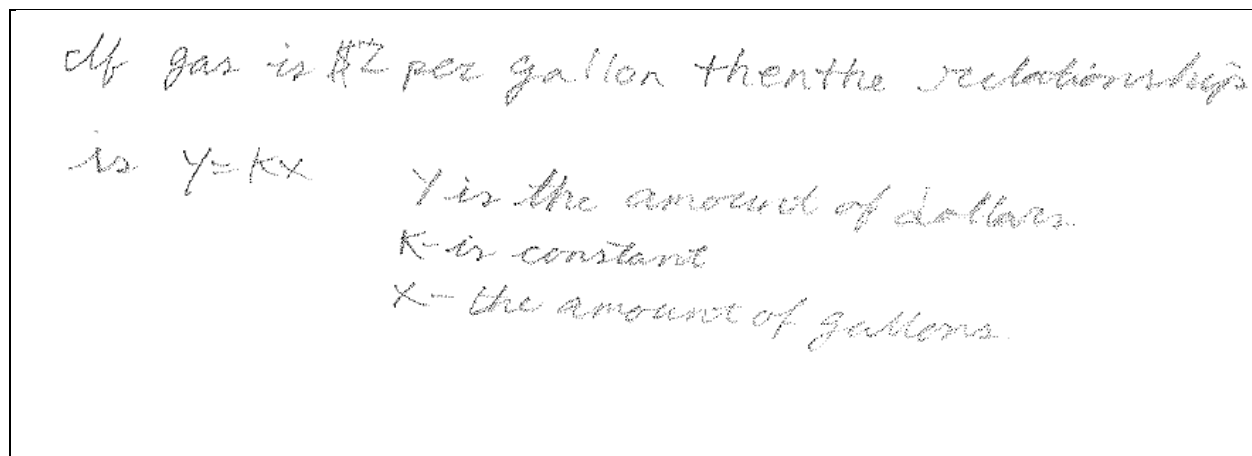 If gas is $2 per gallon then the relationships
is y = kx
y is the amount of dollars.
K - is constant
X - the amount of gallons.